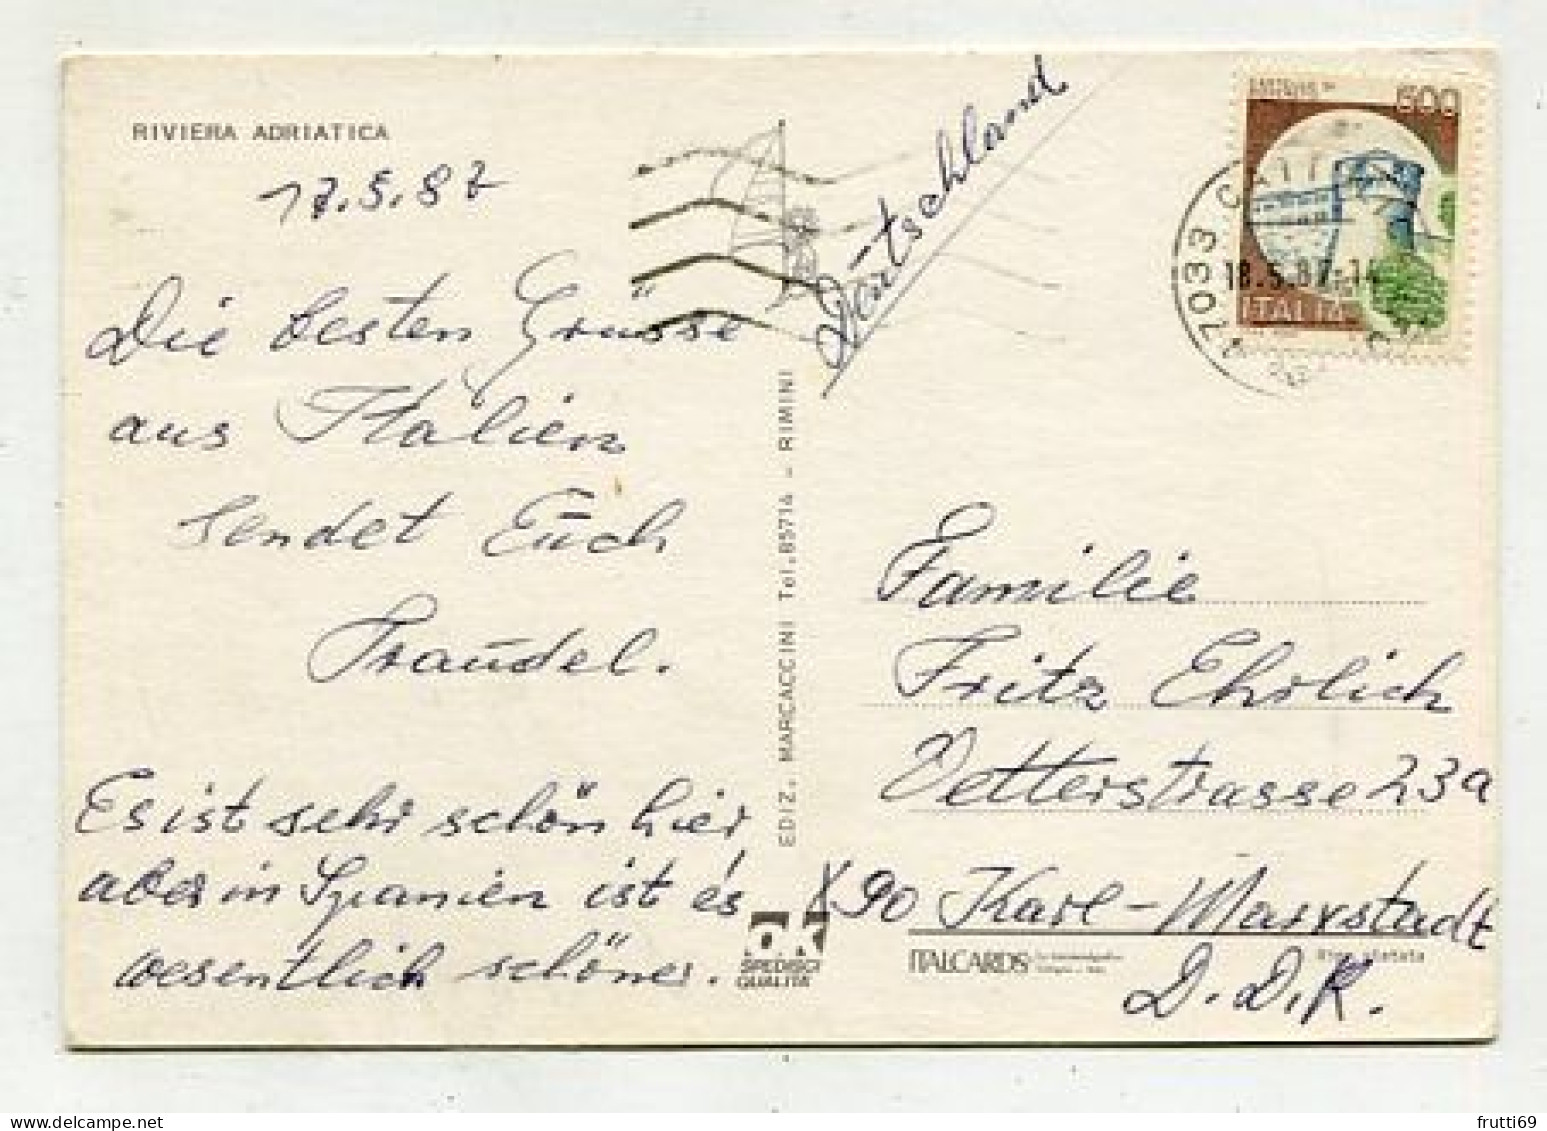 RIVIERA ADRIATICA
17.5.87
Die besten Grüsse
aus Italien
sendet Euch
Traudel.
Es ist sehr schön hier,
aber in Spanien ist es
wesentlich schöner.
EDIZ. MARCACCINI Tel. 85714 - RIMINI
Deutschland
600
ITALIA
47033
18.5.87-14
Familie
Fritz Ehrlich
Vetterstrasse 23a
X 90 Karl-Marxstadt
D.D.R.
ok
SPEDISCI
QUALITÀ
ITALCARDS
frutti69